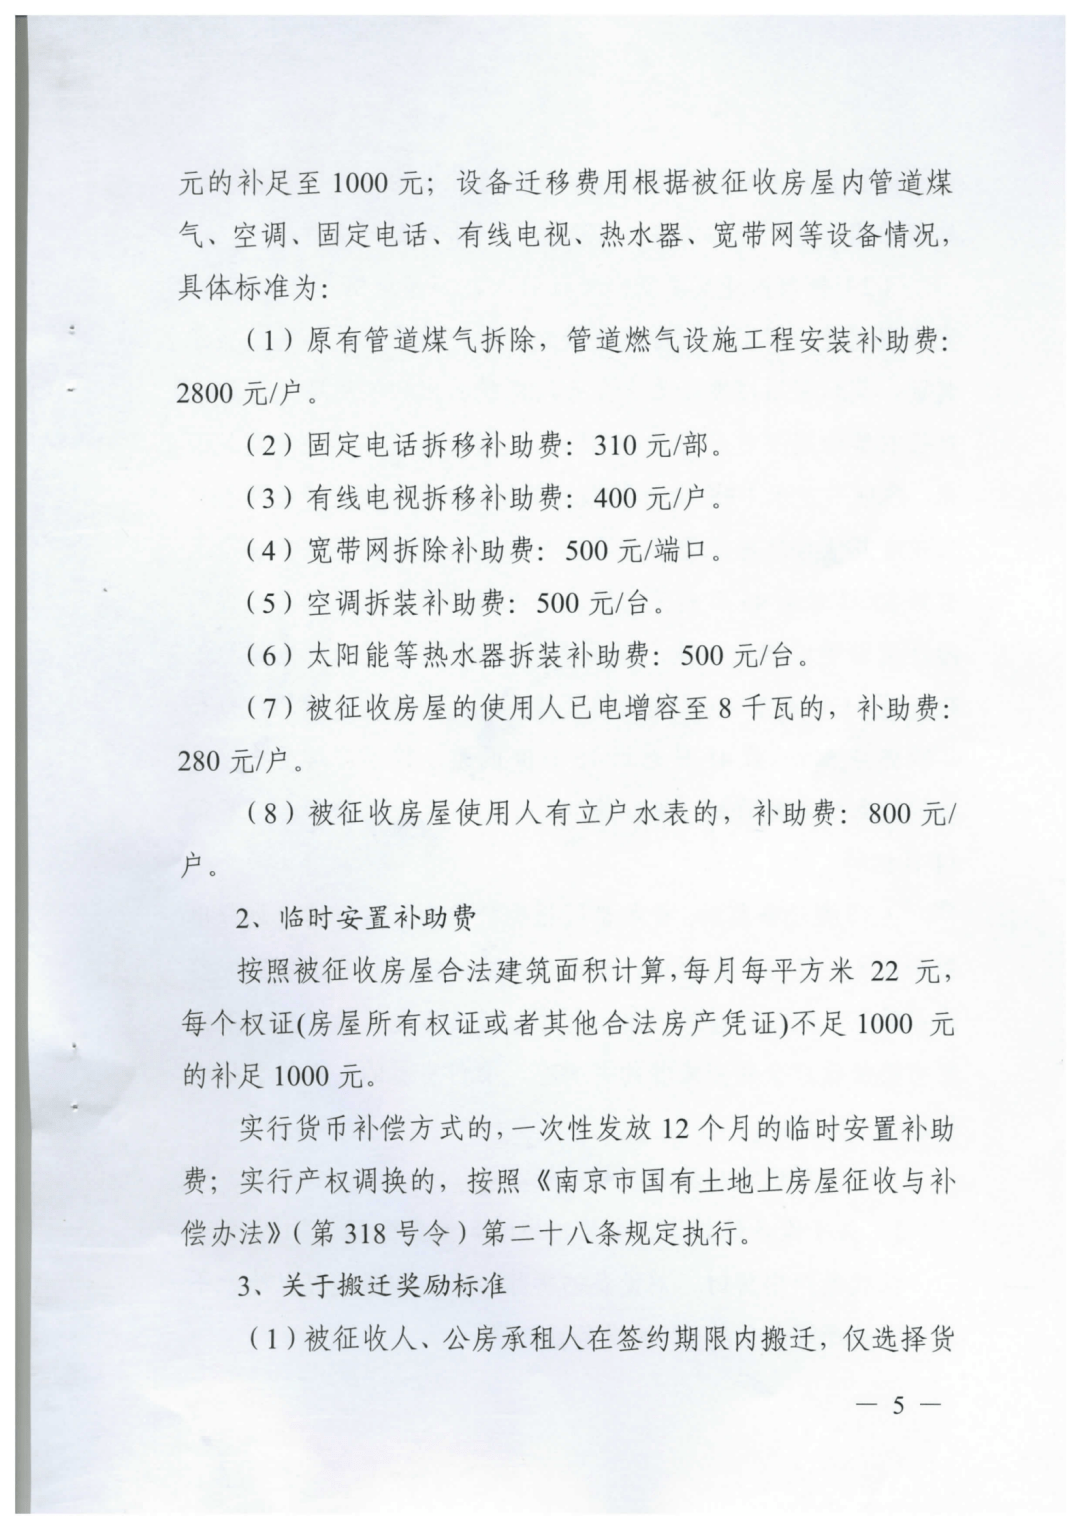 元的补足至 1000 元；设备迁移费用根据被征收房屋内管道煤
气、空调、固定电话、有线电视、热水器、宽带网等设备情况，
具体标准为：
（1）原有管道煤气拆除，管道燃气设施工程安装补助费：
2800 元/户。
（2）固定电话拆移补助费：310 元/部。
（3）有线电视拆移补助费：400 元/户。
（4）宽带网拆除补助费：500 元/端口。
（5）空调拆装补助费：500 元/台。
（6）太阳能等热水器拆装补助费：500 元/台。
（7）被征收房屋的使用人已电增容至 8 千瓦的，补助费：
280 元/户。
（8）被征收房屋使用人有立户水表的，补助费：800 元/
户。
2、临时安置补助费
按照被征收房屋合法建筑面积计算，每月每平方米 22 元，
每个权证(房屋所有权证或者其他合法房产凭证)不足 1000 元
的补足 1000 元。
实行货币补偿方式的，一次性发放 12 个月的临时安置补助
费；实行产权调换的，按照《南京市国有土地上房屋征收与补
偿办法》（第 318 号令）第二十八条规定执行。
3、关于搬迁奖励标准
（1）被征收人、公房承租人在签约期限内搬迁，仅选择货
— 5 —